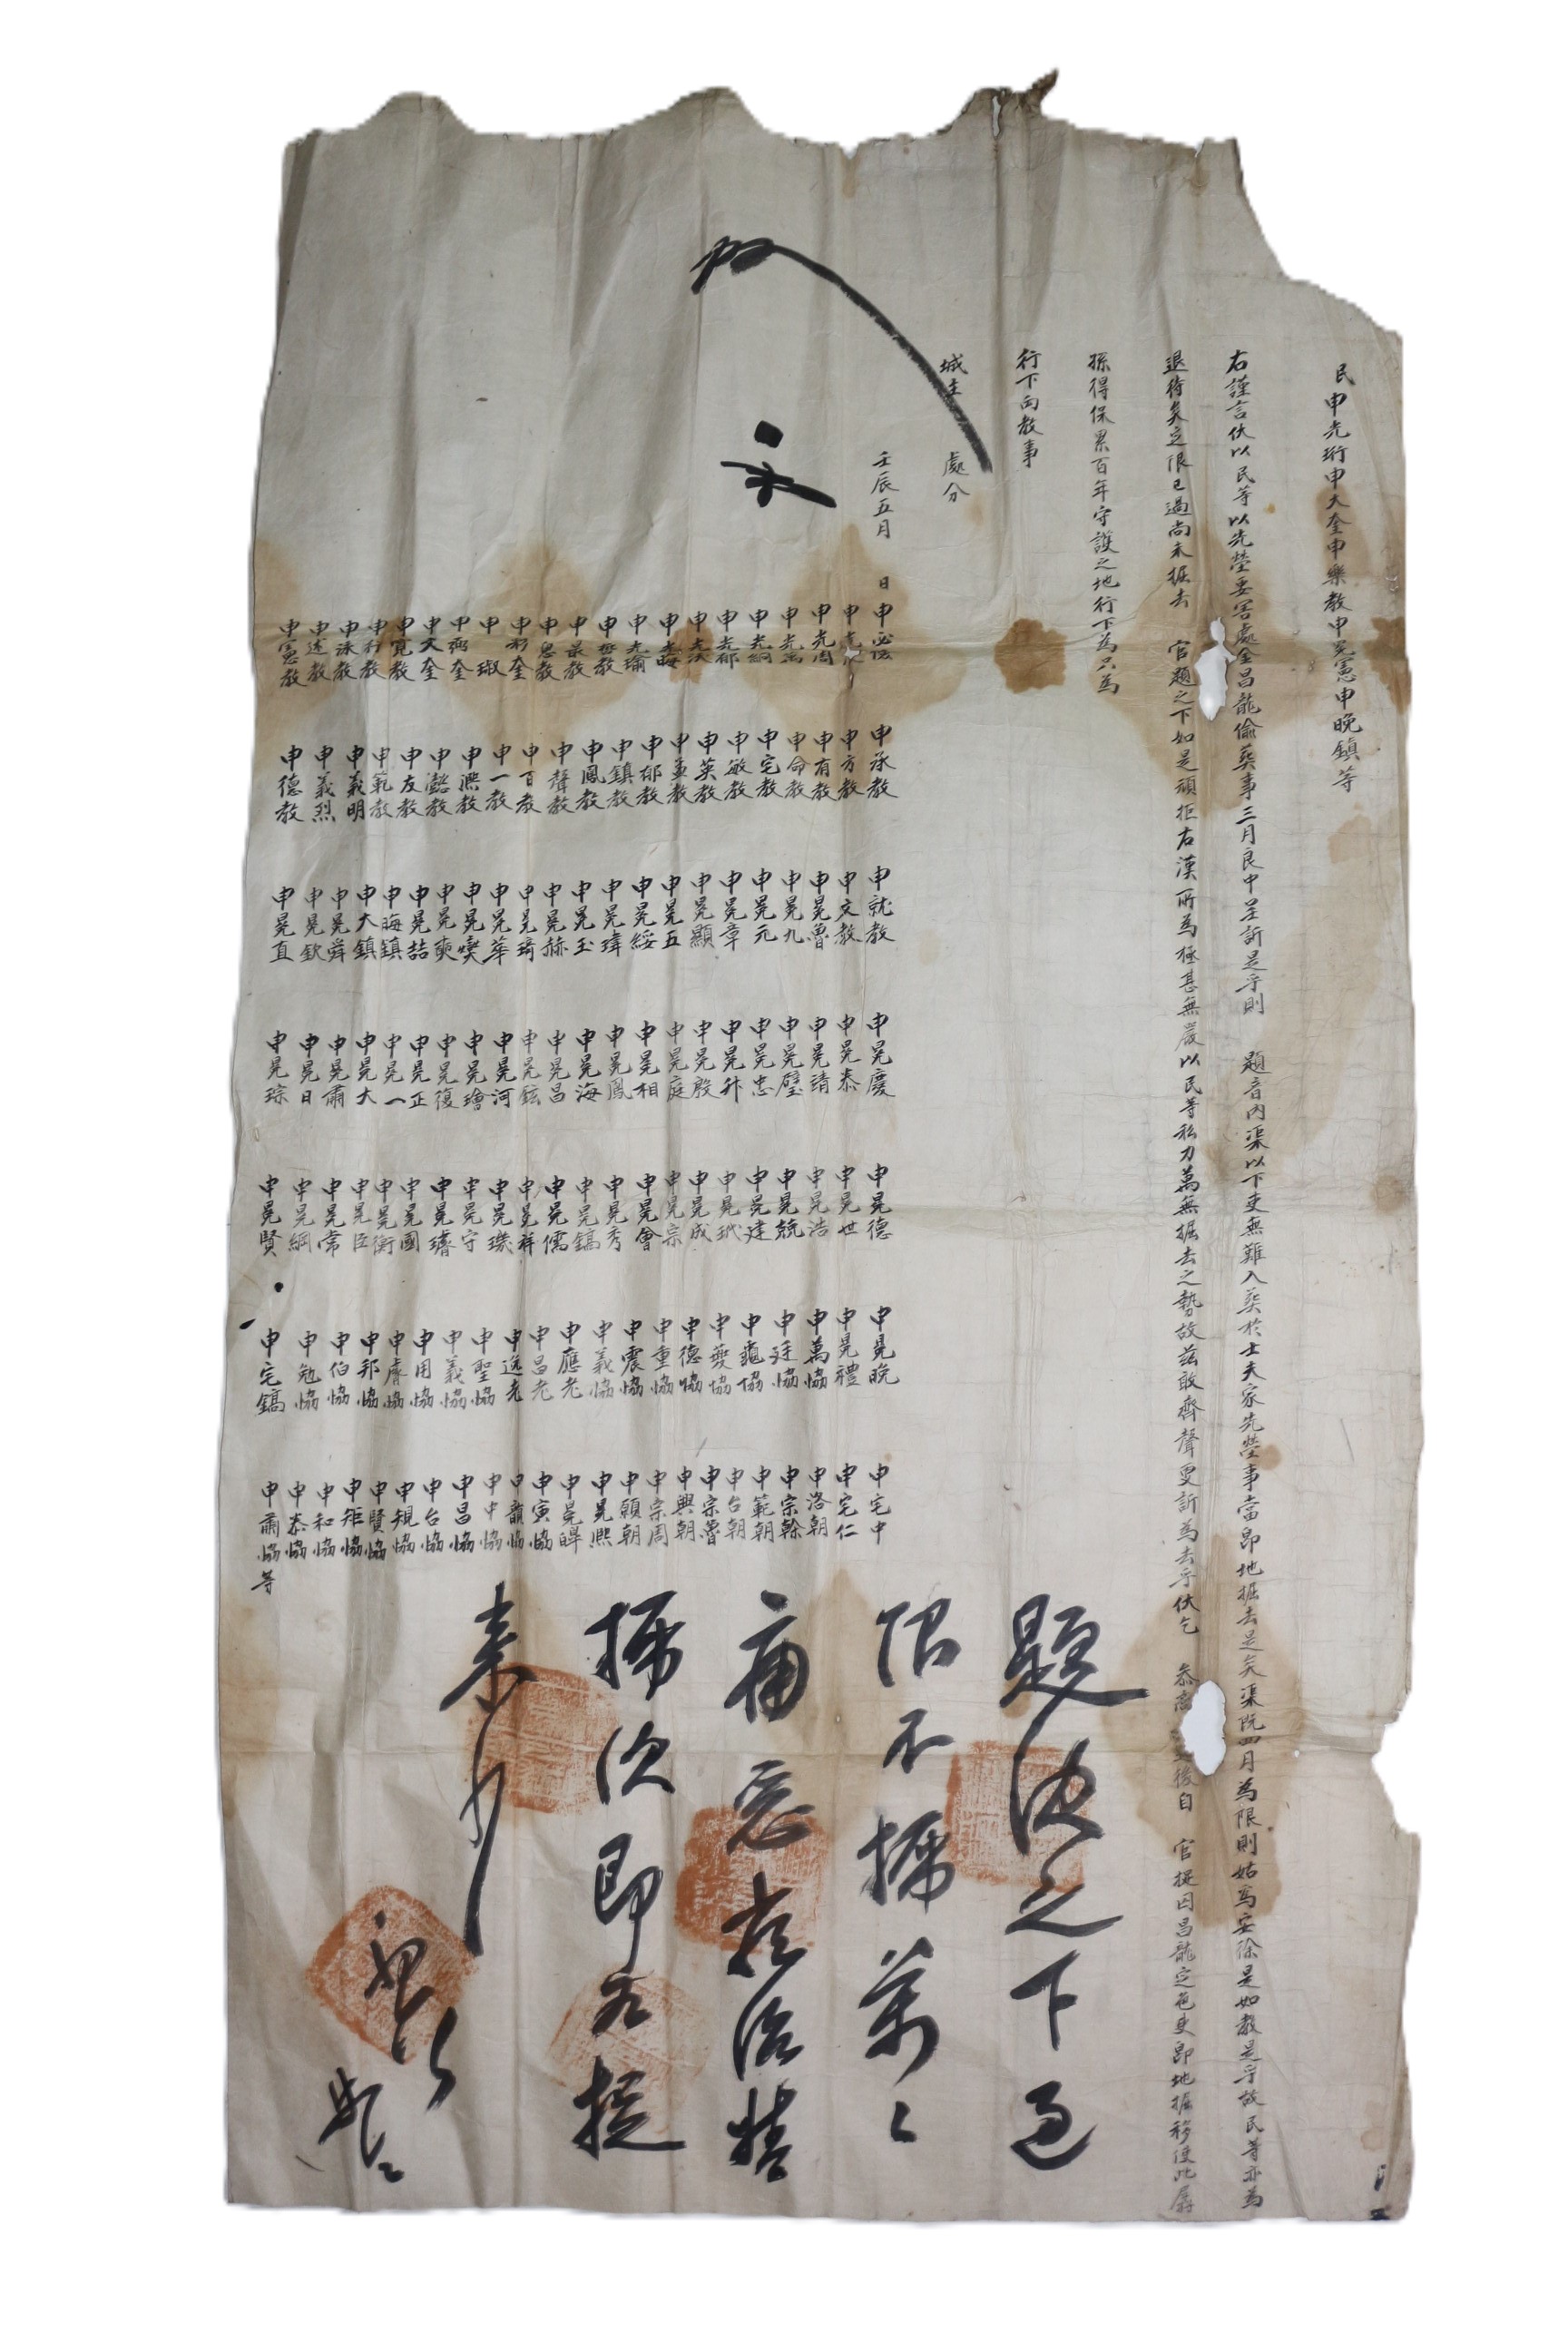 民申光珩申大奎申樂教申冕憲申晩鎭等
右謹言伏以民等以先塋要害處金昌龍偷葬事三月良中呈訴是乎則 題音內渠以下吏無難入葬於士夫家先塋事當卽地掘去是矣渠既四月爲限則姑爲安徐是如教是乎故民等亦爲
退待矣定限已過尚未掘去 官題之下如是頑拒右漢所爲極甚無嚴以民等私力萬無掘去之勢故玆敢齊聲更訴爲去乎伏乞 參商 後自 官捉囚昌龍定色吏卽地掘移俾此孱
孫得保累百年守護之地行下爲只爲
行下向教事
城主 處分
壬辰五月 日
申光周
申光郁
申光瑜
申 琡
申大奎
申寬教
申行教
申泳教
申述教
申憲教
申承教
申方教
申有教
申命教
申宅教
申敏教
申英教
申孟教
申郁教
申鎭教
申鳳教
申聲教
申百教
申一教
申熙教
申懿教
申友教
申範教
申義明
申義烈
申德教
申就教
申文教
申冕魯
申冕九
申冕元
申冕章
申冕顯
申冕五
申冕綏
申冕瑋
申冕玉
申冕赫
申冕琦
申冕華
申冕奭
申冕喆
申晦鎭
申大鎭
申冕舜
申冕欽
申冕直
申冕慶
申冕泰
申冕靖
申冕璧
申冕忠
申冕升
申冕殷
申冕庭
申冕相
申冕鳳
申冕海
申冕昌
申冕鉉
申冕河
申冕璯
申冕復
申冕正
申冕一
申冕大
申冕肅
申冕日
申冕琮
申冕德
申冕世
申冕浩
申冕兢
申冕建
申冕玳
申冕成
申冕宗
申冕會
申冕秀
申冕鎬
申冕儒
申冕祥
申冕璣
申冕守
申冕璹
申冕國
申冕衡
申冕臣
申冕常
申冕綱
申冕賢
申冕晩
申冕禮
申萬協
申廷協
申龜協
申夔協
申德協
申重協
申震協
申義協
申應老
申昌老
申逸老
申聖協
申義協
申用協
申膺協
申邦協
申伯協
申勉協
申宅鎬
申宅中
申宅仁
申洛朝
申宗榦
申範朝
申台朝
申宗魯
申興朝
申宗周
申顯朝
申冕熙
申冕皥
申寅協
申韻協
申中協
申昌協
申台協
申規協
申賢協
申矩協
申和協
申泰協
申肅協等
題決之下過
限不掘萬〻
痛惡嚴治督
掘次卽爲捉
來向事